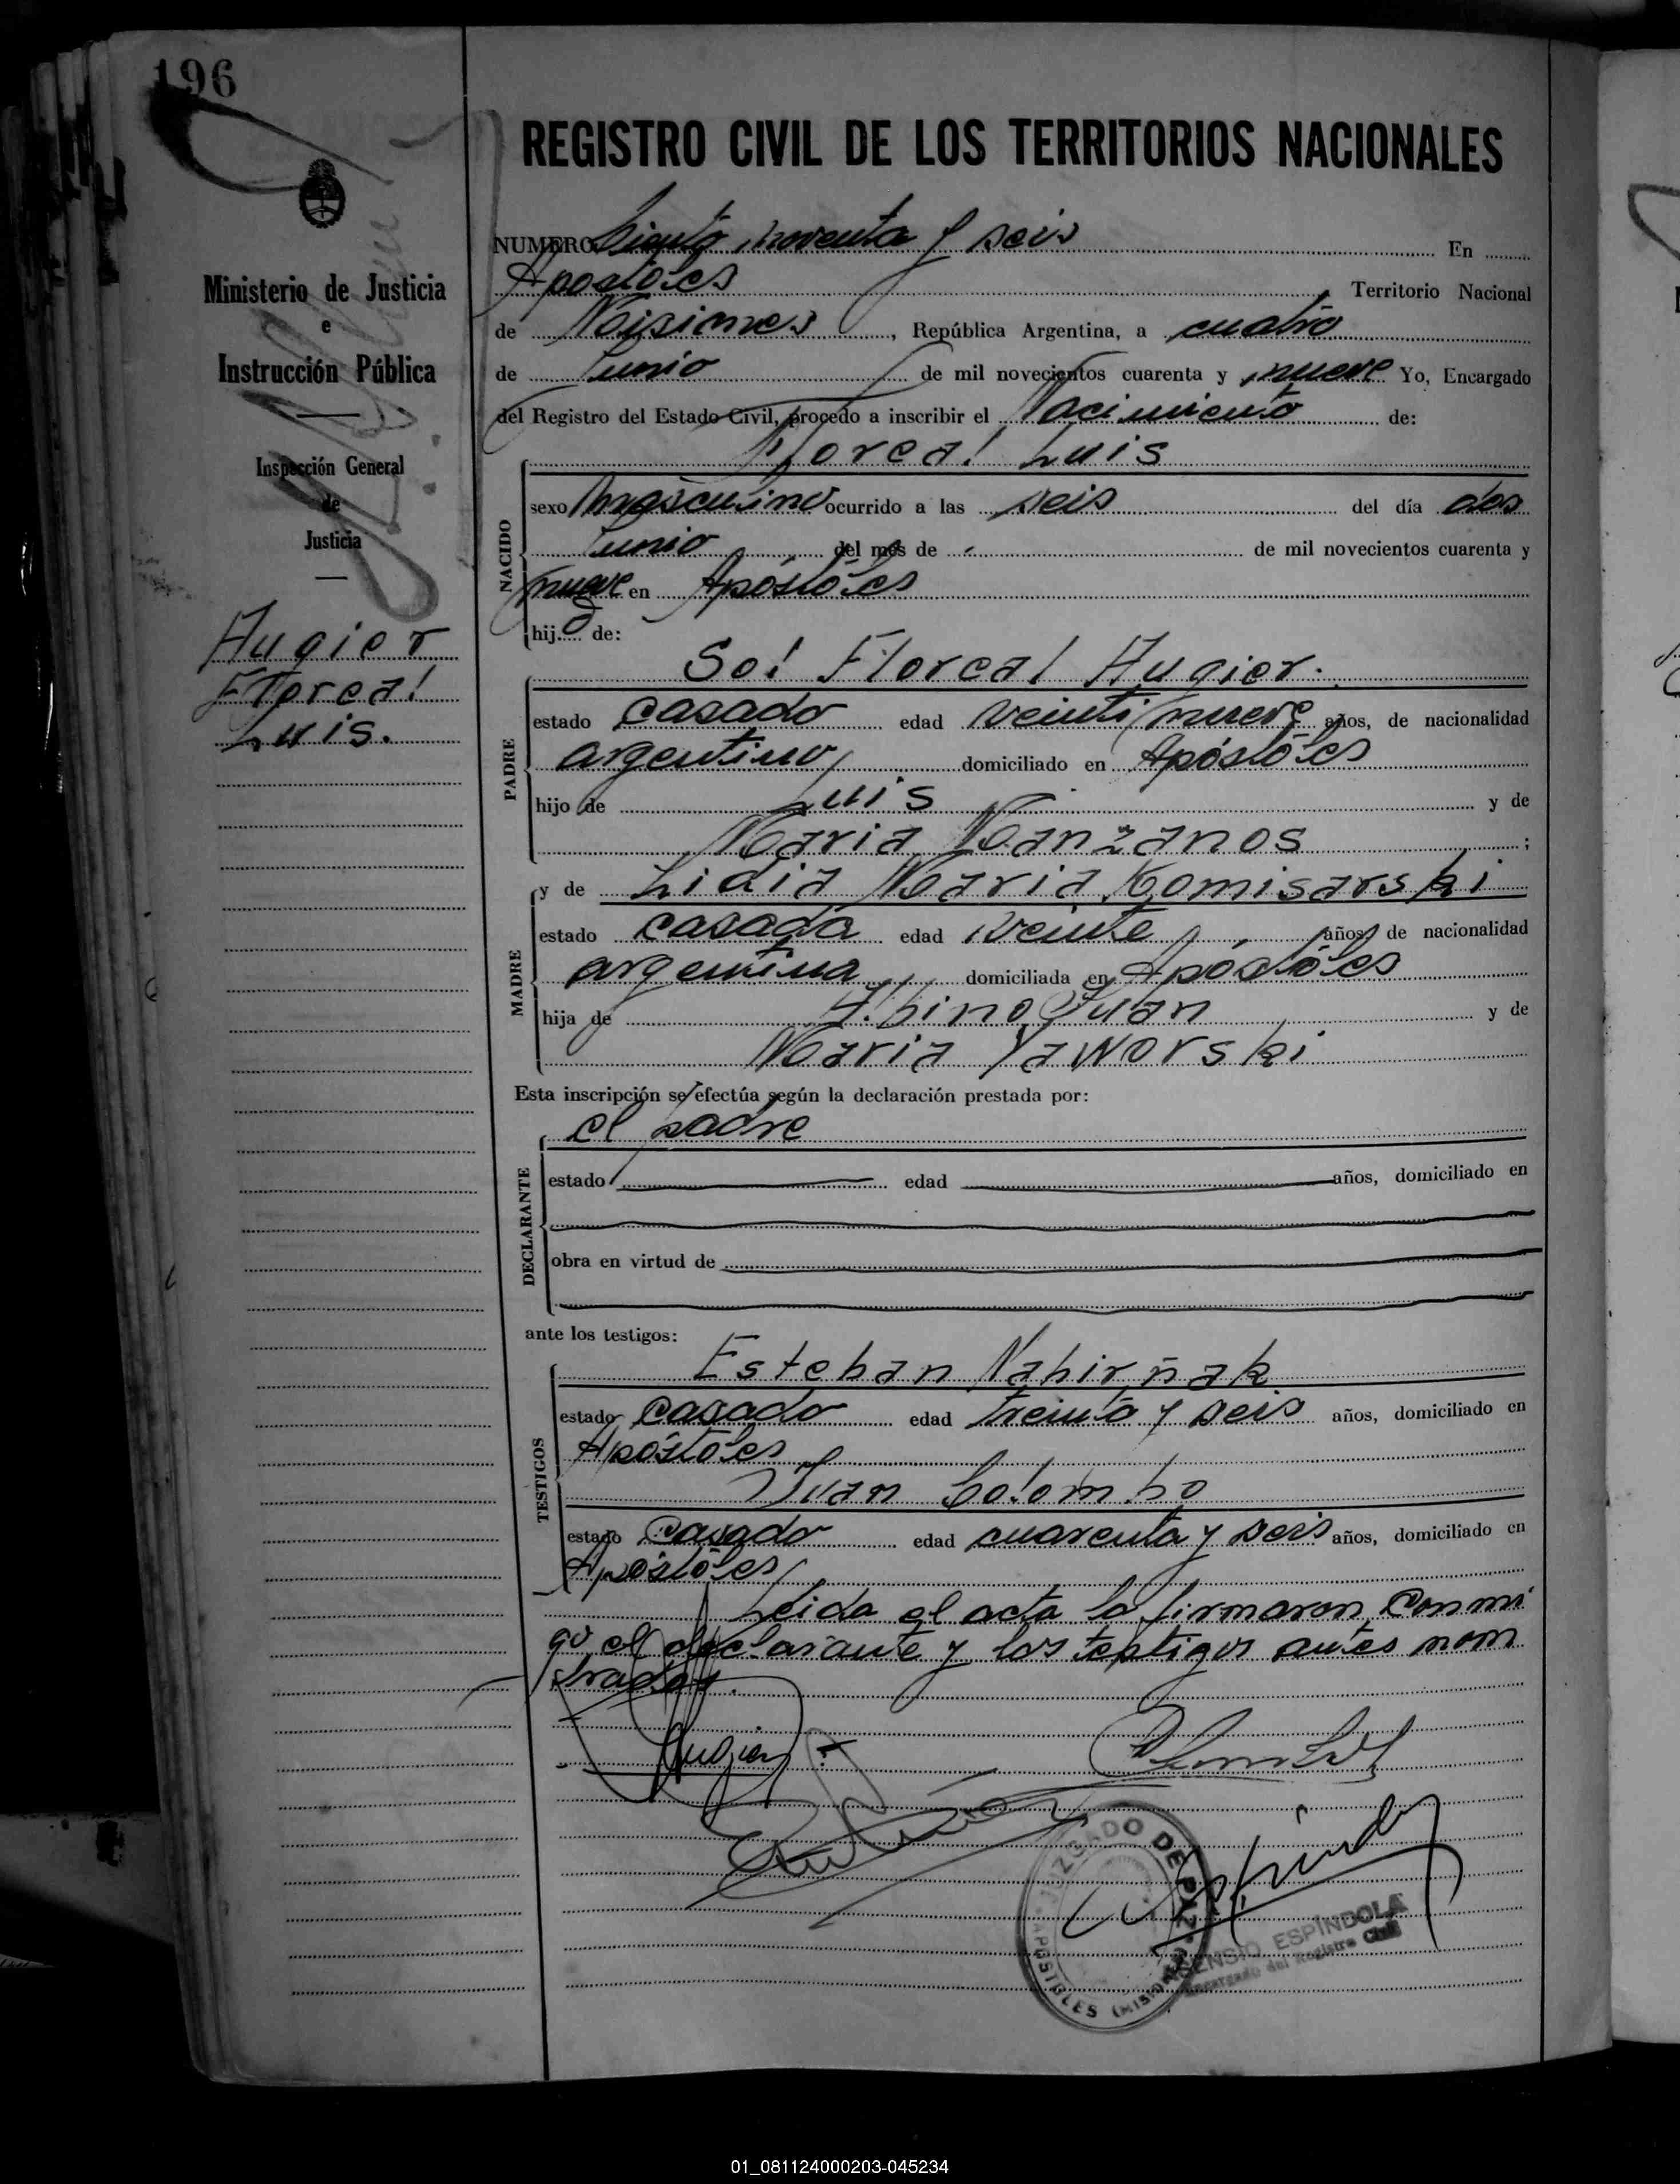 196
REGISTRO CIVIL DE LOS TERRITORIOS NACIONALES
Ministerio de Justicia
e
Instrucción Pública
Inspección General
de
Justicia
Augier
Floreal
Luis.
NUMERO Ciento noventa y seis En
Apostoles, Territorio Nacional
de Misiones, República Argentina, a cuatro
de Junio de mil novecientos cuarenta y nueve Yo, Encargado
del Registro del Estado Civil, procedo a inscribir el Nacimiento de:
Floreal Luis
NACIDO
sexo Masculino ocurrido a las seis del día dos
Junio del mes de de mil novecientos cuarenta y
nueve en Apóstoles
hijo de:
Sol Floreal Augier.
PADRE
estado casado edad veinti nueve años, de nacionalidad
argentino domiciliado en Apóstoles
hijo de Luis y de
Maria Manzanos ;
MADRE
y de Lidia Maria Komisarski
estado casada edad veinte años, de nacionalidad
argentina domiciliada en Apóstoles
hija de Albino Juan y de
Maria Yaworski
Esta inscripción se efectúa según la declaración prestada por:
el padre
DECLARANTE
estado edad años, domiciliado en
obra en virtud de
ante los testigos:
TESTIGOS
Esteban Nahirñak
estado Casado edad treinta y seis años, domiciliado en
Apóstoles
Juan Colombo
estado Casado edad cuarenta y seis años, domiciliado en
Apóstoles
Leida el acta la firmaron Conmi
go el declarante y los testigos antes nom
brados.
Augier
JUZGADO DE PAZ
APOSTOLES (MISIONES)
ASENSIO ESPÍNDOLA
Encargado del Registro Civil
01_081124000203-045234